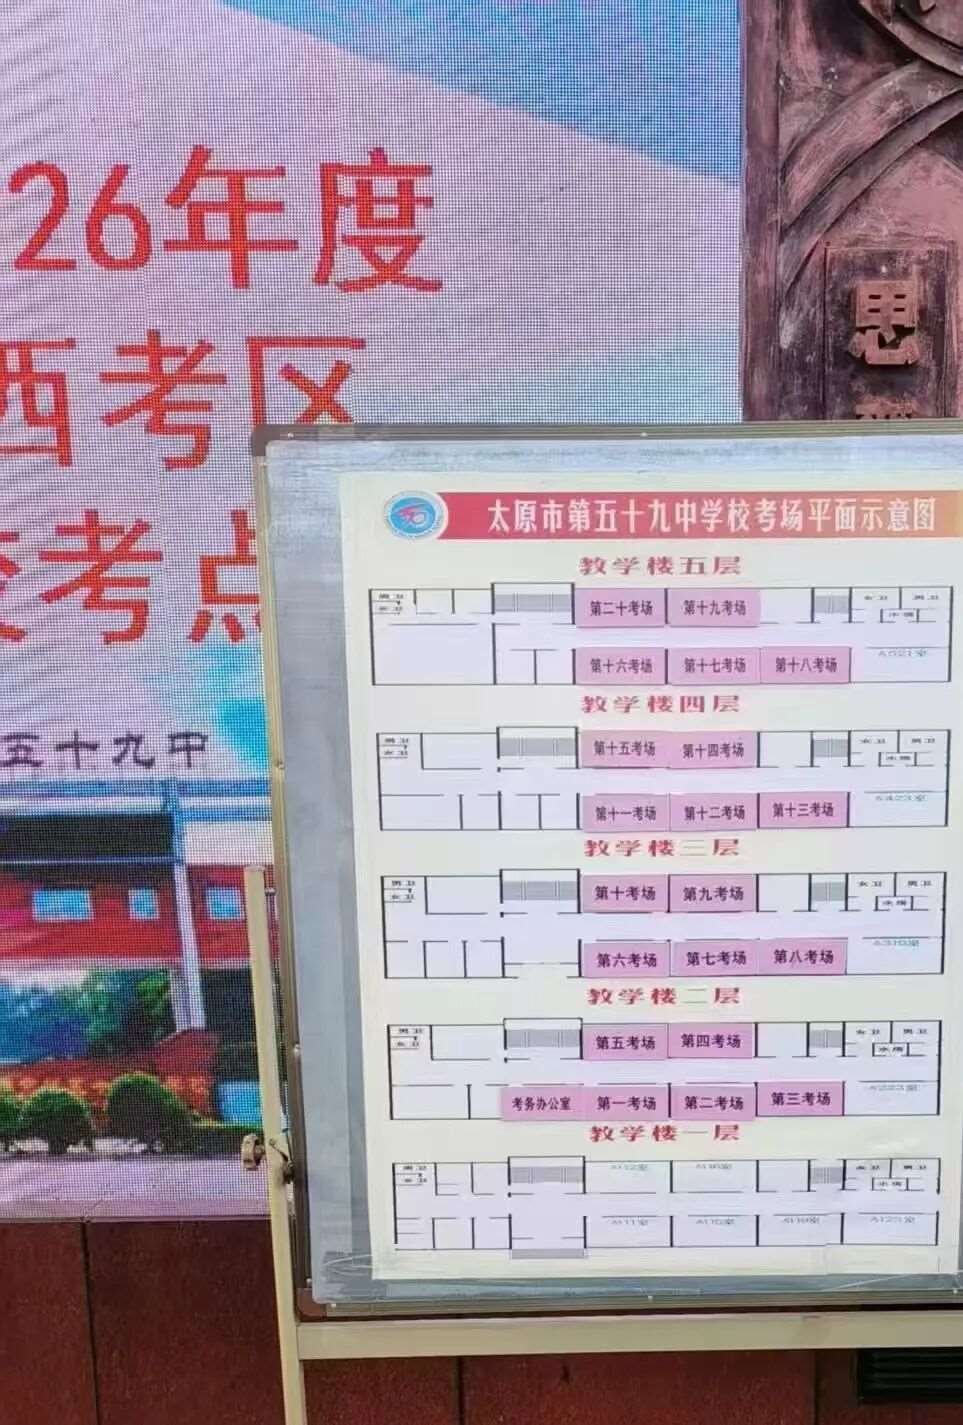 26年度
西考区
校考点
五十九中
思
太原市第五十九中学校考场平面示意图
教学楼五层
男卫
女卫
第二十考场 第十九考场
女卫 男卫
水房
第十六考场 第十七考场 第十八考场 A521室
教学楼四层
男卫
女卫
第十五考场 第十四考场
女卫 男卫
水房
第十一考场 第十二考场 第十三考场 A423室
教学楼三层
男卫
女卫
第十考场 第九考场
女卫 男卫
水房
第六考场 第七考场 第八考场
教学楼二层
男卫
女卫
第五考场 第四考场
女卫 男卫
水房
考务办公室 第一考场 第二考场 第三考场 A223室
教学楼一层
男卫
女卫
A112室 A116室
女卫 男卫
水房
A111室 A115室 A119室 A123室